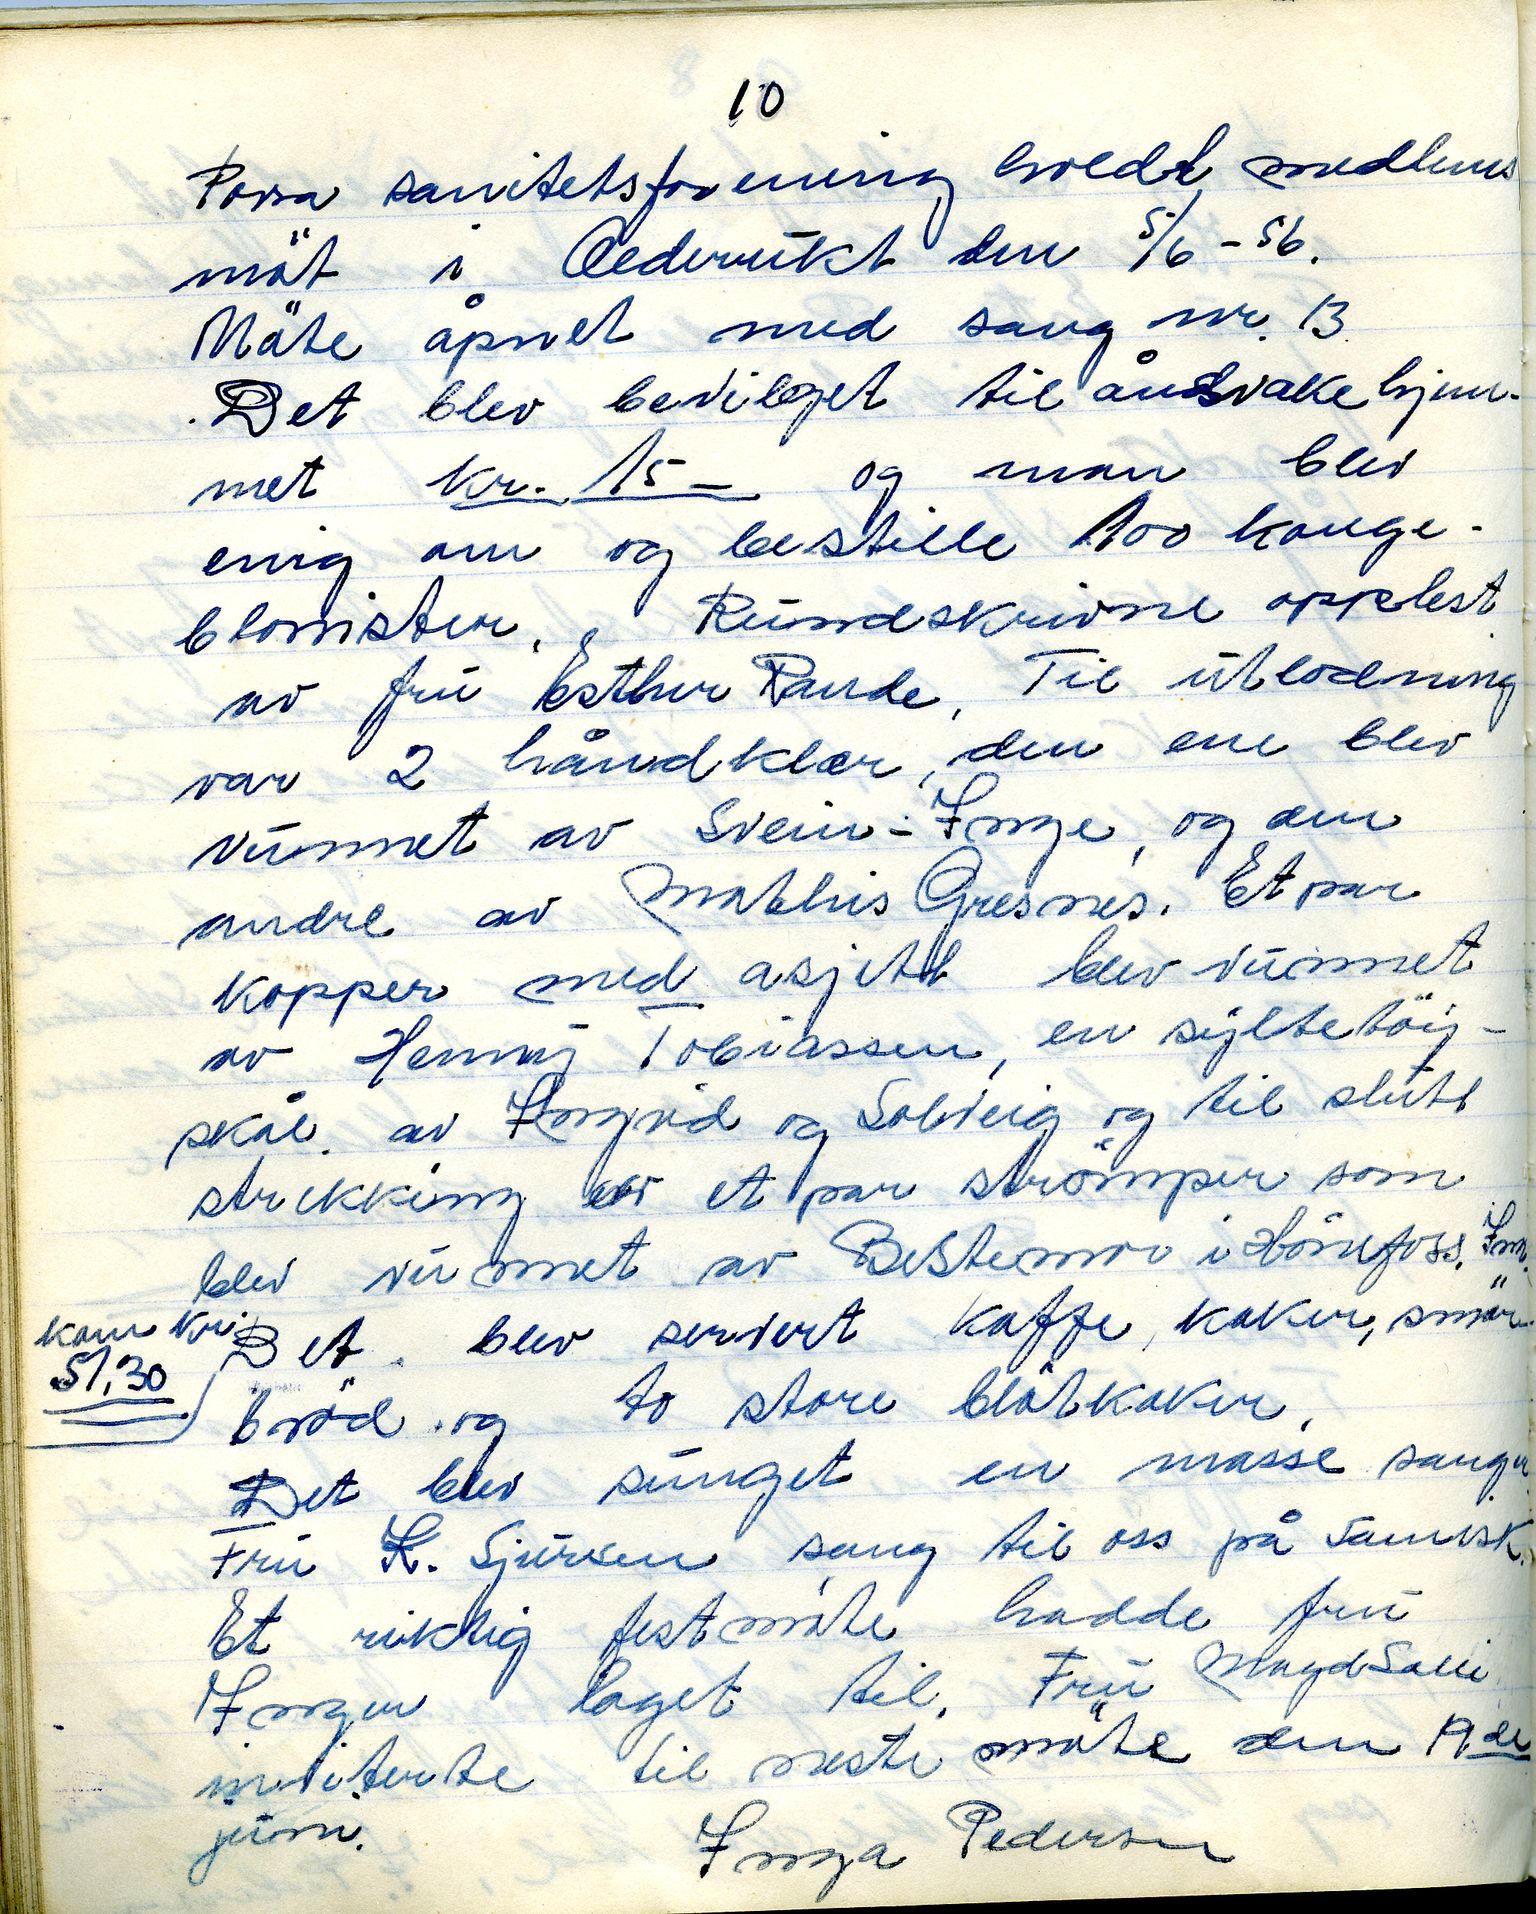 10
Porsa sanitetsforening holdt medlems
möt i Oldervikt den 5/6 - 56.
Möte åpnet med sang nr. 13.
Det blev bevilget til åndsvakehjem-
met kr. 15 - og man blev
enig om og bestille 100 konge-
blomster. Rundskrivne opplest
av frü Esther Rande, Til ütlodning
var 2 håndklær, den ene blev
vünnet av Svein-Inge, og den
andre av Mathis Gresnes. Et par
kopper med asjett blev vünnet
av Henny Tobiassen, en syltetöy-
skål av Ingrid og Solveig og til slütt
strikking av et par strömper som
blev vünnet av Bestemor i Hönefoss. Inn
kom kr. 51,30
Det blev servert kaffe, kaker, smör-
bröd og to store blötkaker.
Det blev sünget en masse sanger
Frü K. Sjursen sang til oss på Samisk.
Et riktig festmöte hadde frü
Inger laget til. Frü Magd Salli
inviterte til neste möte den 19 de
jüni.
Inga Pedersen